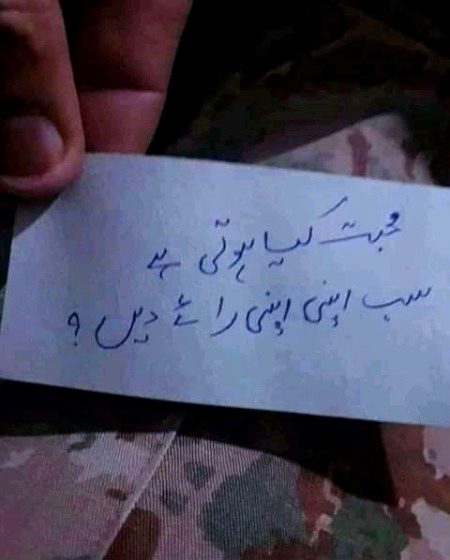 محبت کیا ہوتی ہے
سب اپنی اپنی رائے دیں ؟